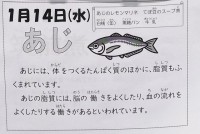 1月14日(水)
あじのレモンマリネ
牛乳
あじ
あじには、体をつくるたんぱく質のほかに、脂質もふ
くまれています。
あじの脂質には、脳の働きをよくしたり、血の流れを
よくしたりする働きがあるといわれています。